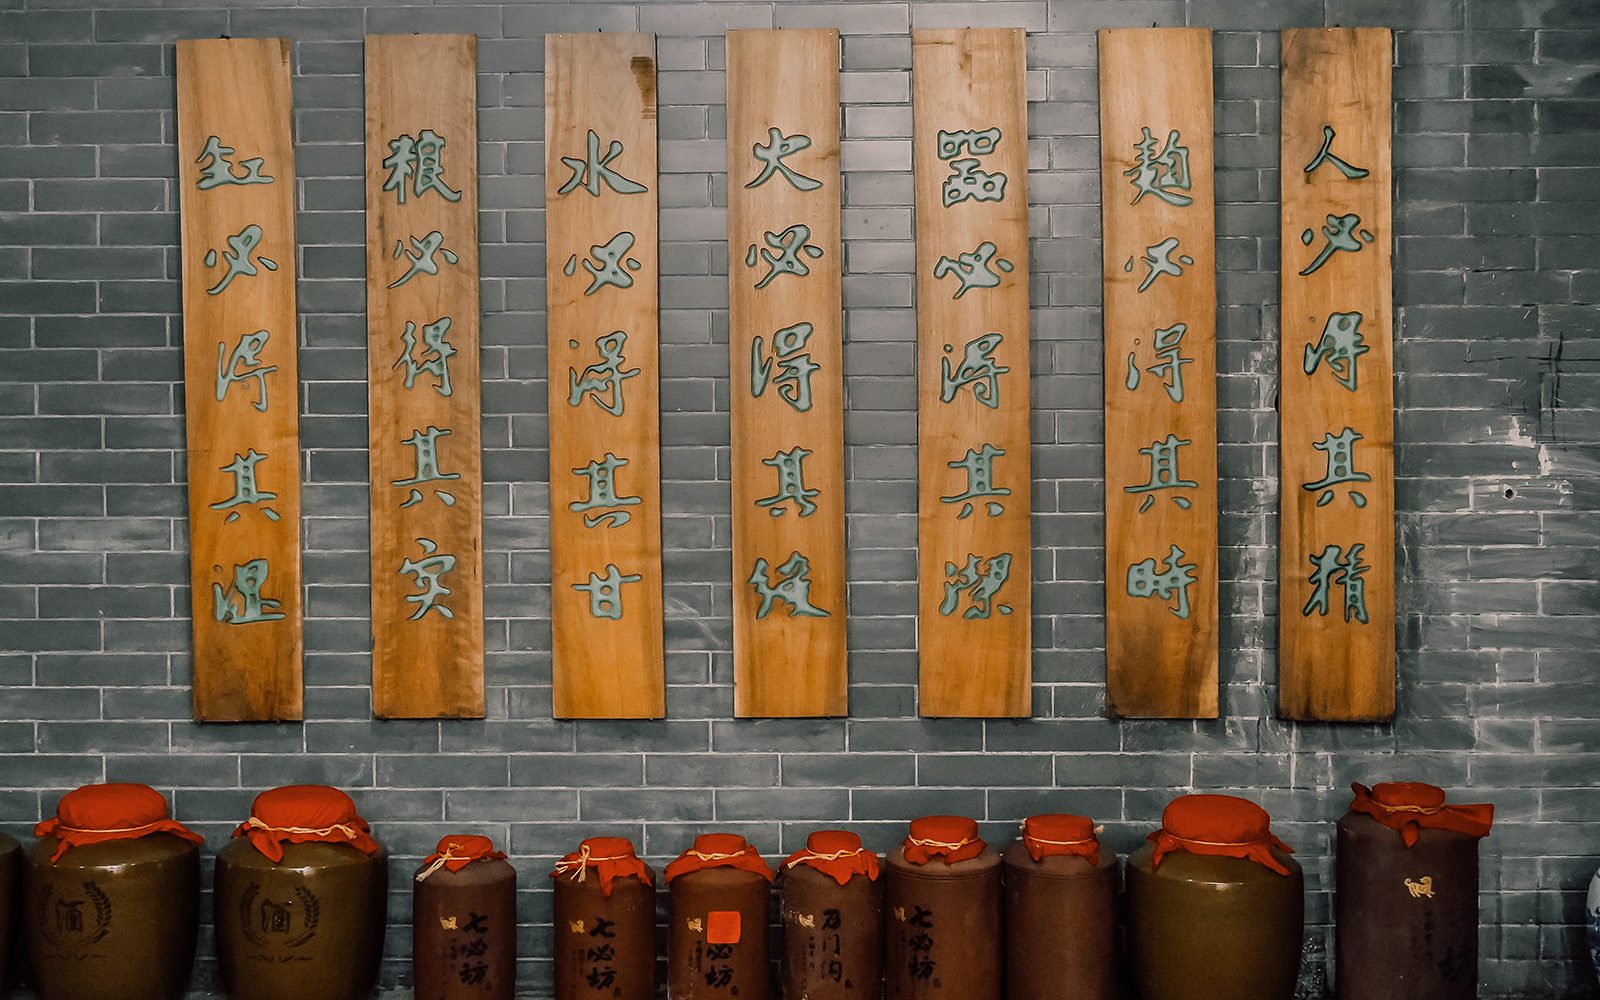 人必得其精
麹必得其時
器必得其潔
火必得其缓
水必得其甘
粮必得其实
缸必得其湿
酒
酒
七必坊
七必坊
必坊
七必坊